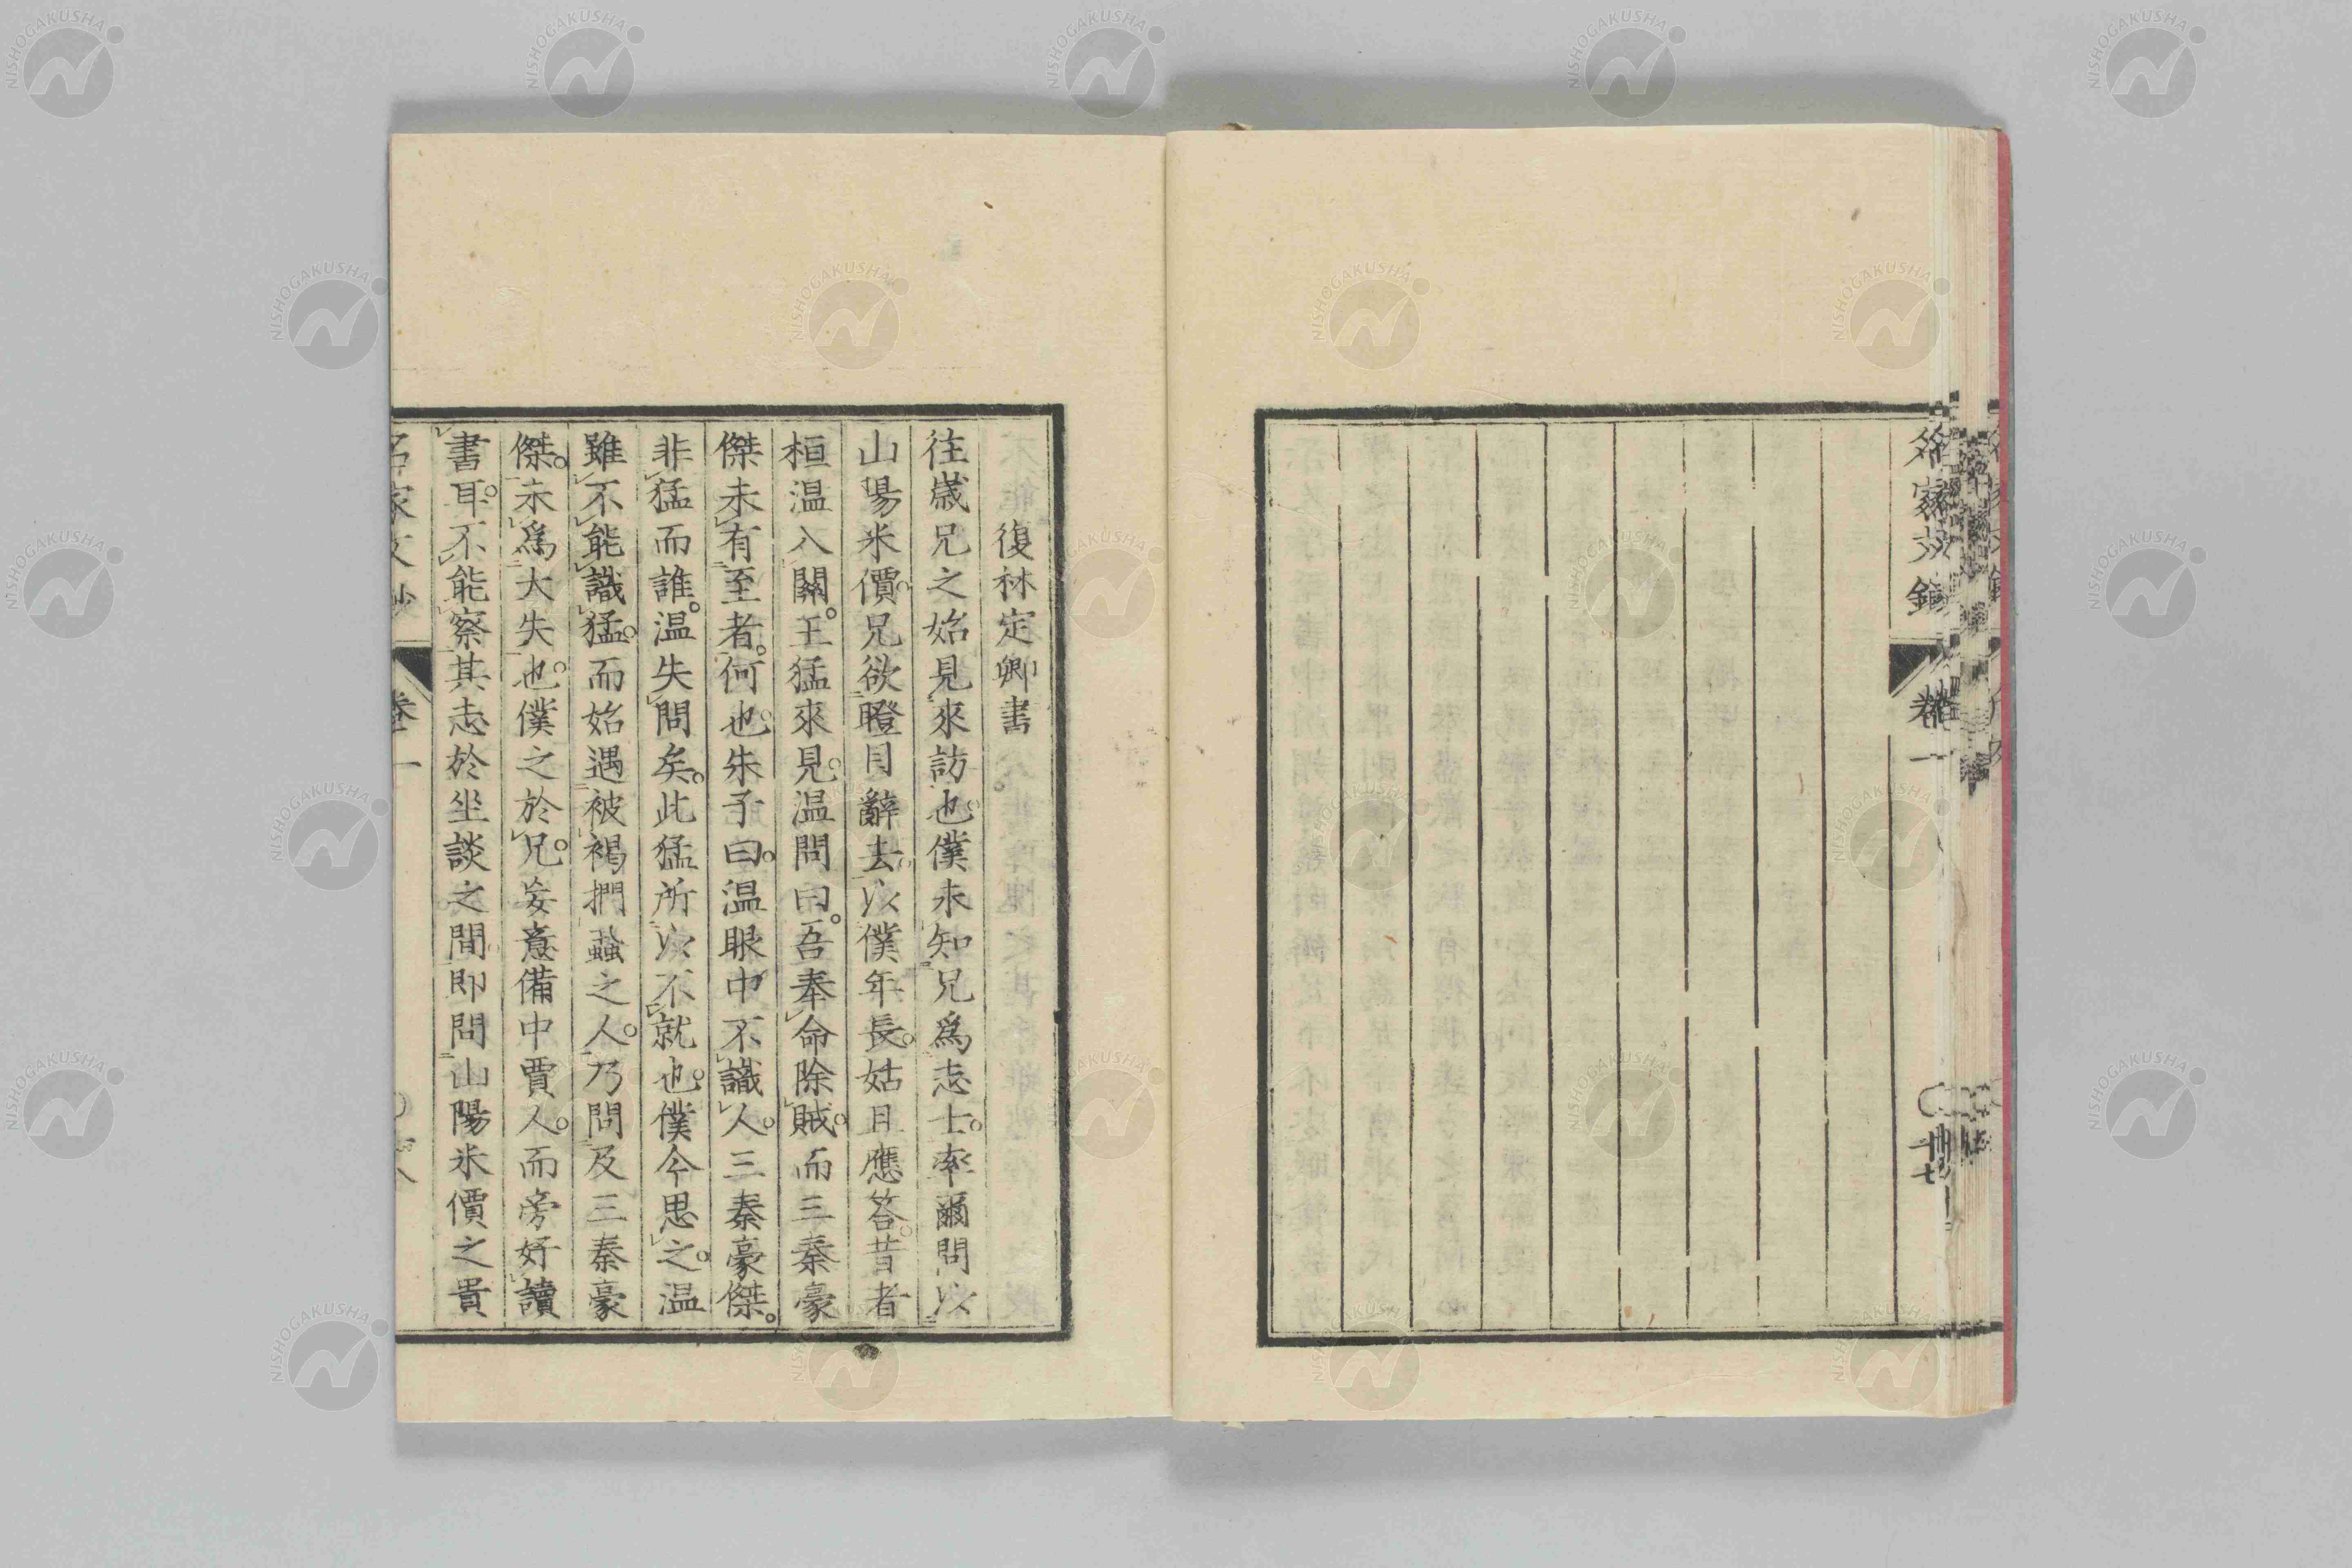 名家文鈔
卷一
十七
復林定卿書
往歲兄之始見來訪也。僕未知兄爲志士。率爾問以
山陽米價。兄欲瞪目辭去。以僕年長。姑且應答。昔者
桓温入關。王猛來見。温問曰。吾奉命除賊。而三秦豪
傑未有至者。何也。朱子曰。温眼中不識人。三秦豪傑。
非猛而誰。温失問矣。此猛所以不就也。僕今思之。温
雖不能識猛。而始遇被褐捫蝨之人。乃問及三秦豪
傑。未爲大失也。僕之於兄。妄意備中賈人。而旁好讀
書耳。不能察其志於坐談之間。即問山陽米價之貴
名家文鈔
卷一
NISHOGAKUSHA